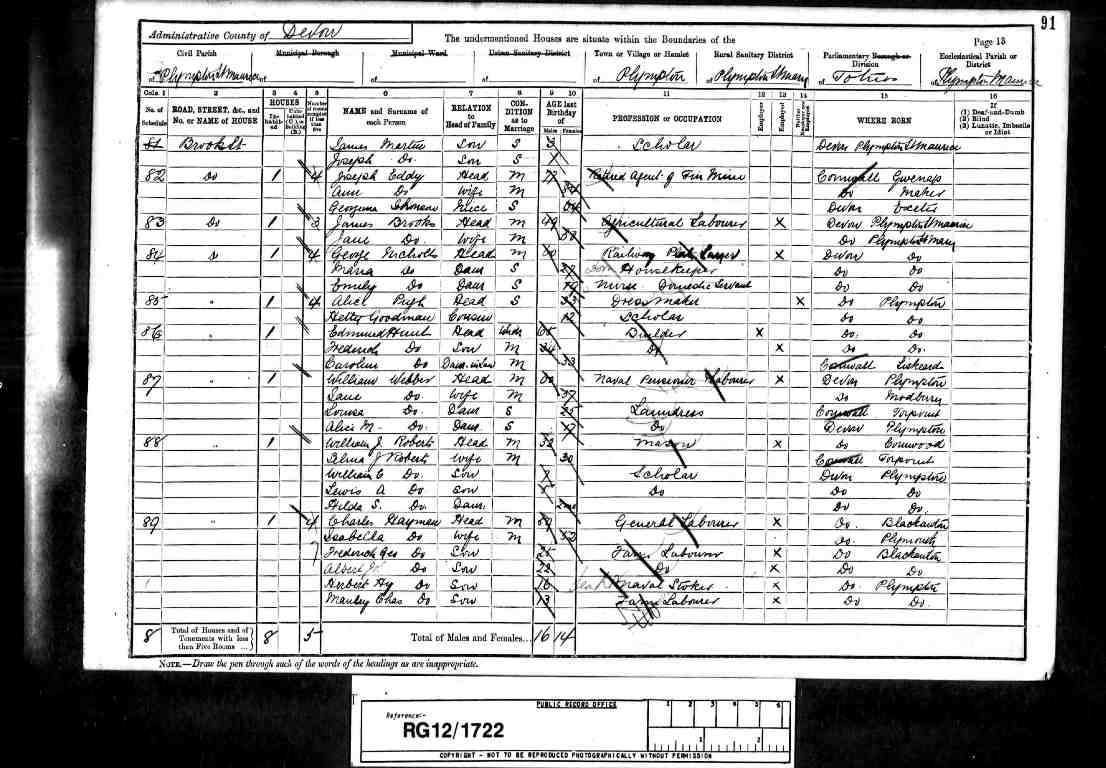 91
Administrative County of Devon
The undermentioned Houses are situate within the Boundaries of the
Page 13
Civil Parish Municipal Borough Municipal Ward Urban Sanitary District Town or Village or Hamlet Rural Sanitary District Parliamentary Borough or Division Ecclesiastical Parish or District
of Plympton St Maurice of of of Plympton of Plympton St Mary of Totnes of Plympton Maurice
Cols. 1 2 3 4 5 6 7 8 9 10 11 12 13 14 15 16
No. of Schedule ROAD, STREET, &c., and No. or NAME of HOUSE HOUSES Inhabited NAME and Surname of each Person RELATION to Head of Family CONDITION as to Marriage AGE last Birthday of Males Females PROFESSION or OCCUPATION Employer Employed WHERE BORN If (1) Deaf-and-Dumb (2) Blind (3) Lunatic, Imbecile or Idiot
81 Brook St James Martin Son S 3 Scholar Devon Plympton St Maurice
Joseph Do. Son S
82 Do 1 4 Joseph Eddy Head M Retired Agent of Tin Mine Cornwall Gwennap
Ann Do Wife M Do
Georgina Niece S Devon Exeter
83 Do 1 3 James Brooks Head M 49 Agricultural Labourer X Devon Plympton St Maurice
Jane Do. Wife M Do Plympton St Mary
84 1 4 George Nicholls Head M 60 Railway Plate Layer X Devon Do
Maria Do Daur S Housekeeper Do Do
Emily Do Daur S 19 Nurse Domestic Servant Do Do
85 " 1 4 Alice Pugh Head S Dress Maker X Do Plympton
Hetty Goodman Cousin 12 Scholar Do Do
86 " 1 Edmund Hunt Head Widr 65 Builder X Do. Do
Frederick Do Son M 34 Do X Do. Do
Caroline Do Daur-in-law M 33 Cornwall Liskeard
87 " 1 William Webber Head M 60 Naval Pensioner Labourer X Devon Plympton
Jane Do. Wife M 57 Do Modbury
Louisa Do. Daur S 25 Laundress Cornwall Torpoint
Alice M. Do. Daur. S 17 Do Devon Plympton
88 " 1 William J Roberts Head M 32 Mason X Do Cornwood
Alma J Roberts Wife M 30 Cornwall Torpoint
William E Do. Son 7 Scholar Devon Plympton
Lewis A Do Son 5 Do Do Do
Hilda S. Do. Daur. 2mo Do. Do
89 " 1 4 Charles Hayman Head M General Labourer X Do. Blackawton
Isabella Do Wife M 52 Do. Plymouth
Frederick Geo Do Son 25 Farm Labourer X Do Blackawton
Albert Do Son 22 Do X Do Do
Herbert Hy Do Son 16 Naval Stoker X Do. Plympton
Manley Chas Do Son 13 Farm Labourer X Do Do.
8 Total of Houses and of Tenements with less than Five Rooms ... 8 5 Total of Males and Females... 16 14
NOTE.—Draw the pen through such of the words of the headings as are inappropriate.
PUBLIC RECORD OFFICE
Reference:-
RG12/1722
1 2 3 4 5 6
1 2
COPYRIGHT - NOT TO BE REPRODUCED PHOTOGRAPHICALLY WITHOUT PERMISSION